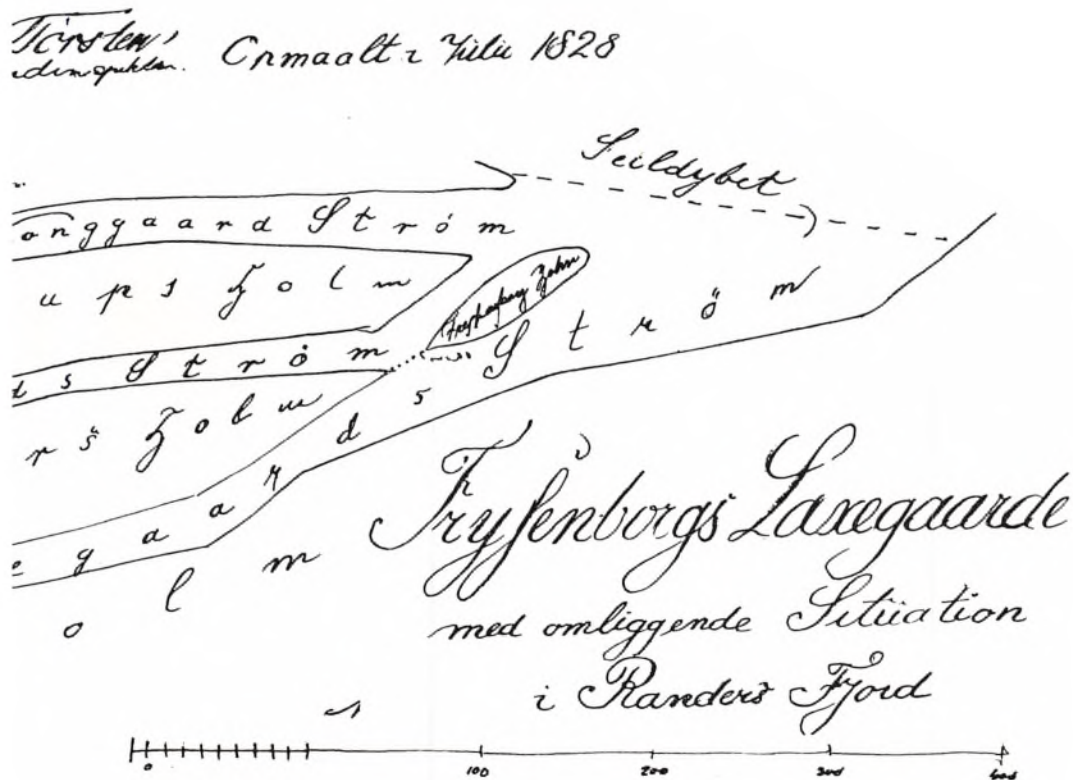 Opmaalt i Julii 1828
Seildybet
onggaard Ström
ups Holm
Frysenborg Holm
ds Ström
rs Holm
egaards Ström
olm
Frysenborgs Laxegaarde
med omliggende Situation
i Randers Fjord
0 100 200 300 400